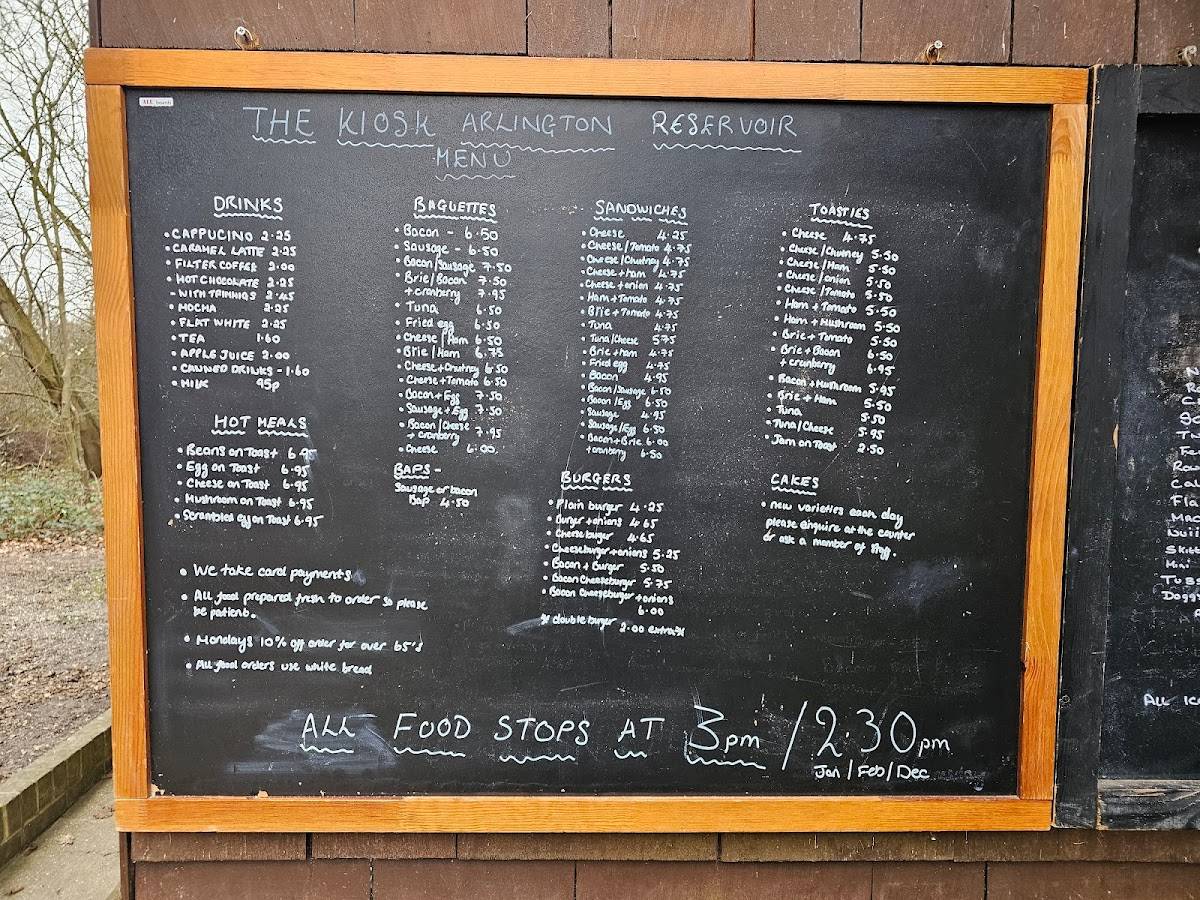 THE KIOSK ARLINGTON RESERVOIR
MENU
DRINKS
• CAPPUCINO 2.25
• CARAMEL LATTE 2.25
• FILTER COFFEE 2.00
• HOT CHOCOLATE 2.25
- WITH TRIMMIGS 2.45
• MOCHA 2.25
• FLAT WHITE 2.25
• TEA 1.60
• APPLE JUICE 2.00
• CANNED DRINKS - 1.60
• MILK 95p
HOT MEALS
• Beans on Toast 6.95
• Egg on Toast 6.95
• Cheese on Toast 6.95
• Mushroom on Toast 6.95
• Scrambled egg on Toast 6.95
BAGUETTES
• Bacon - 6.50
• Sausage - 6.50
• Bacon/Sausage 7.50
• Brie/Bacon 7.50
+ cranberry 7.95
• Tuna 6.50
• Fried egg 6.50
• Cheese/Ham 6.50
• Brie/Ham 6.75
• Cheese+Chutney 6.50
• Cheese+Tomato 6.50
• Bacon+Egg 7.50
• Sausage+Egg 7.50
• Bacon/Cheese
+ cranberry 7.95
• Cheese 6.00
BAPS -
Sausage or bacon
Bap 4.50
SANDWICHES
• Cheese 4.25
• Cheese/Tomato 4.75
• Cheese/Chutney 4.75
• Cheese+ham 4.75
• Cheese+onion 4.75
• Ham+Tomato 4.75
• Brie+Tomato 4.75
• Tuna 4.75
• Tuna/Cheese 5.75
• Brie+ham 4.75
• Fried egg 4.75
• Bacon 4.95
• Bacon/Sausage 6.50
• Bacon/Egg 6.50
• Sausage 4.95
• Sausage/Egg 6.50
• Bacon+Brie 6.00
+cranberry 6.50
BURGERS
• Plain burger 4.25
• Burger+onions 4.65
• Cheese burger 4.65
• Cheeseburger+onions 5.25
• Bacon+Burger 5.50
• Bacon Cheeseburger 5.75
• Bacon Cheeseburger+onions
6.00
* double burger 2.00 extra *
TOASTIES
• Cheese 4.75
• Cheese/Chutney 5.50
• Cheese/Ham 5.50
• Cheese/onion 5.50
• Cheese/Tomato 5.50
• Ham+Tomato 5.50
• Ham+Mushroom 5.50
• Brie+Tomato 5.50
• Brie+Bacon 6.50
+ cranberry 6.95
• Bacon+Mushroom 5.95
• Brie+Ham 5.50
• Tuna 5.50
• Tuna/Cheese 5.95
• Jam on Toast 2.50
CAKES
• new varieties each day
please enquire at the counter
or ask a member of staff.
• We take card payments
• All food prepared fresh to order so please
be patient.
• Mondays 10% off order for over 65's
• All food orders use white bread
ALL FOOD STOPS AT 3pm / 2.30pm
Jan / Feb / Dec
ALL IC